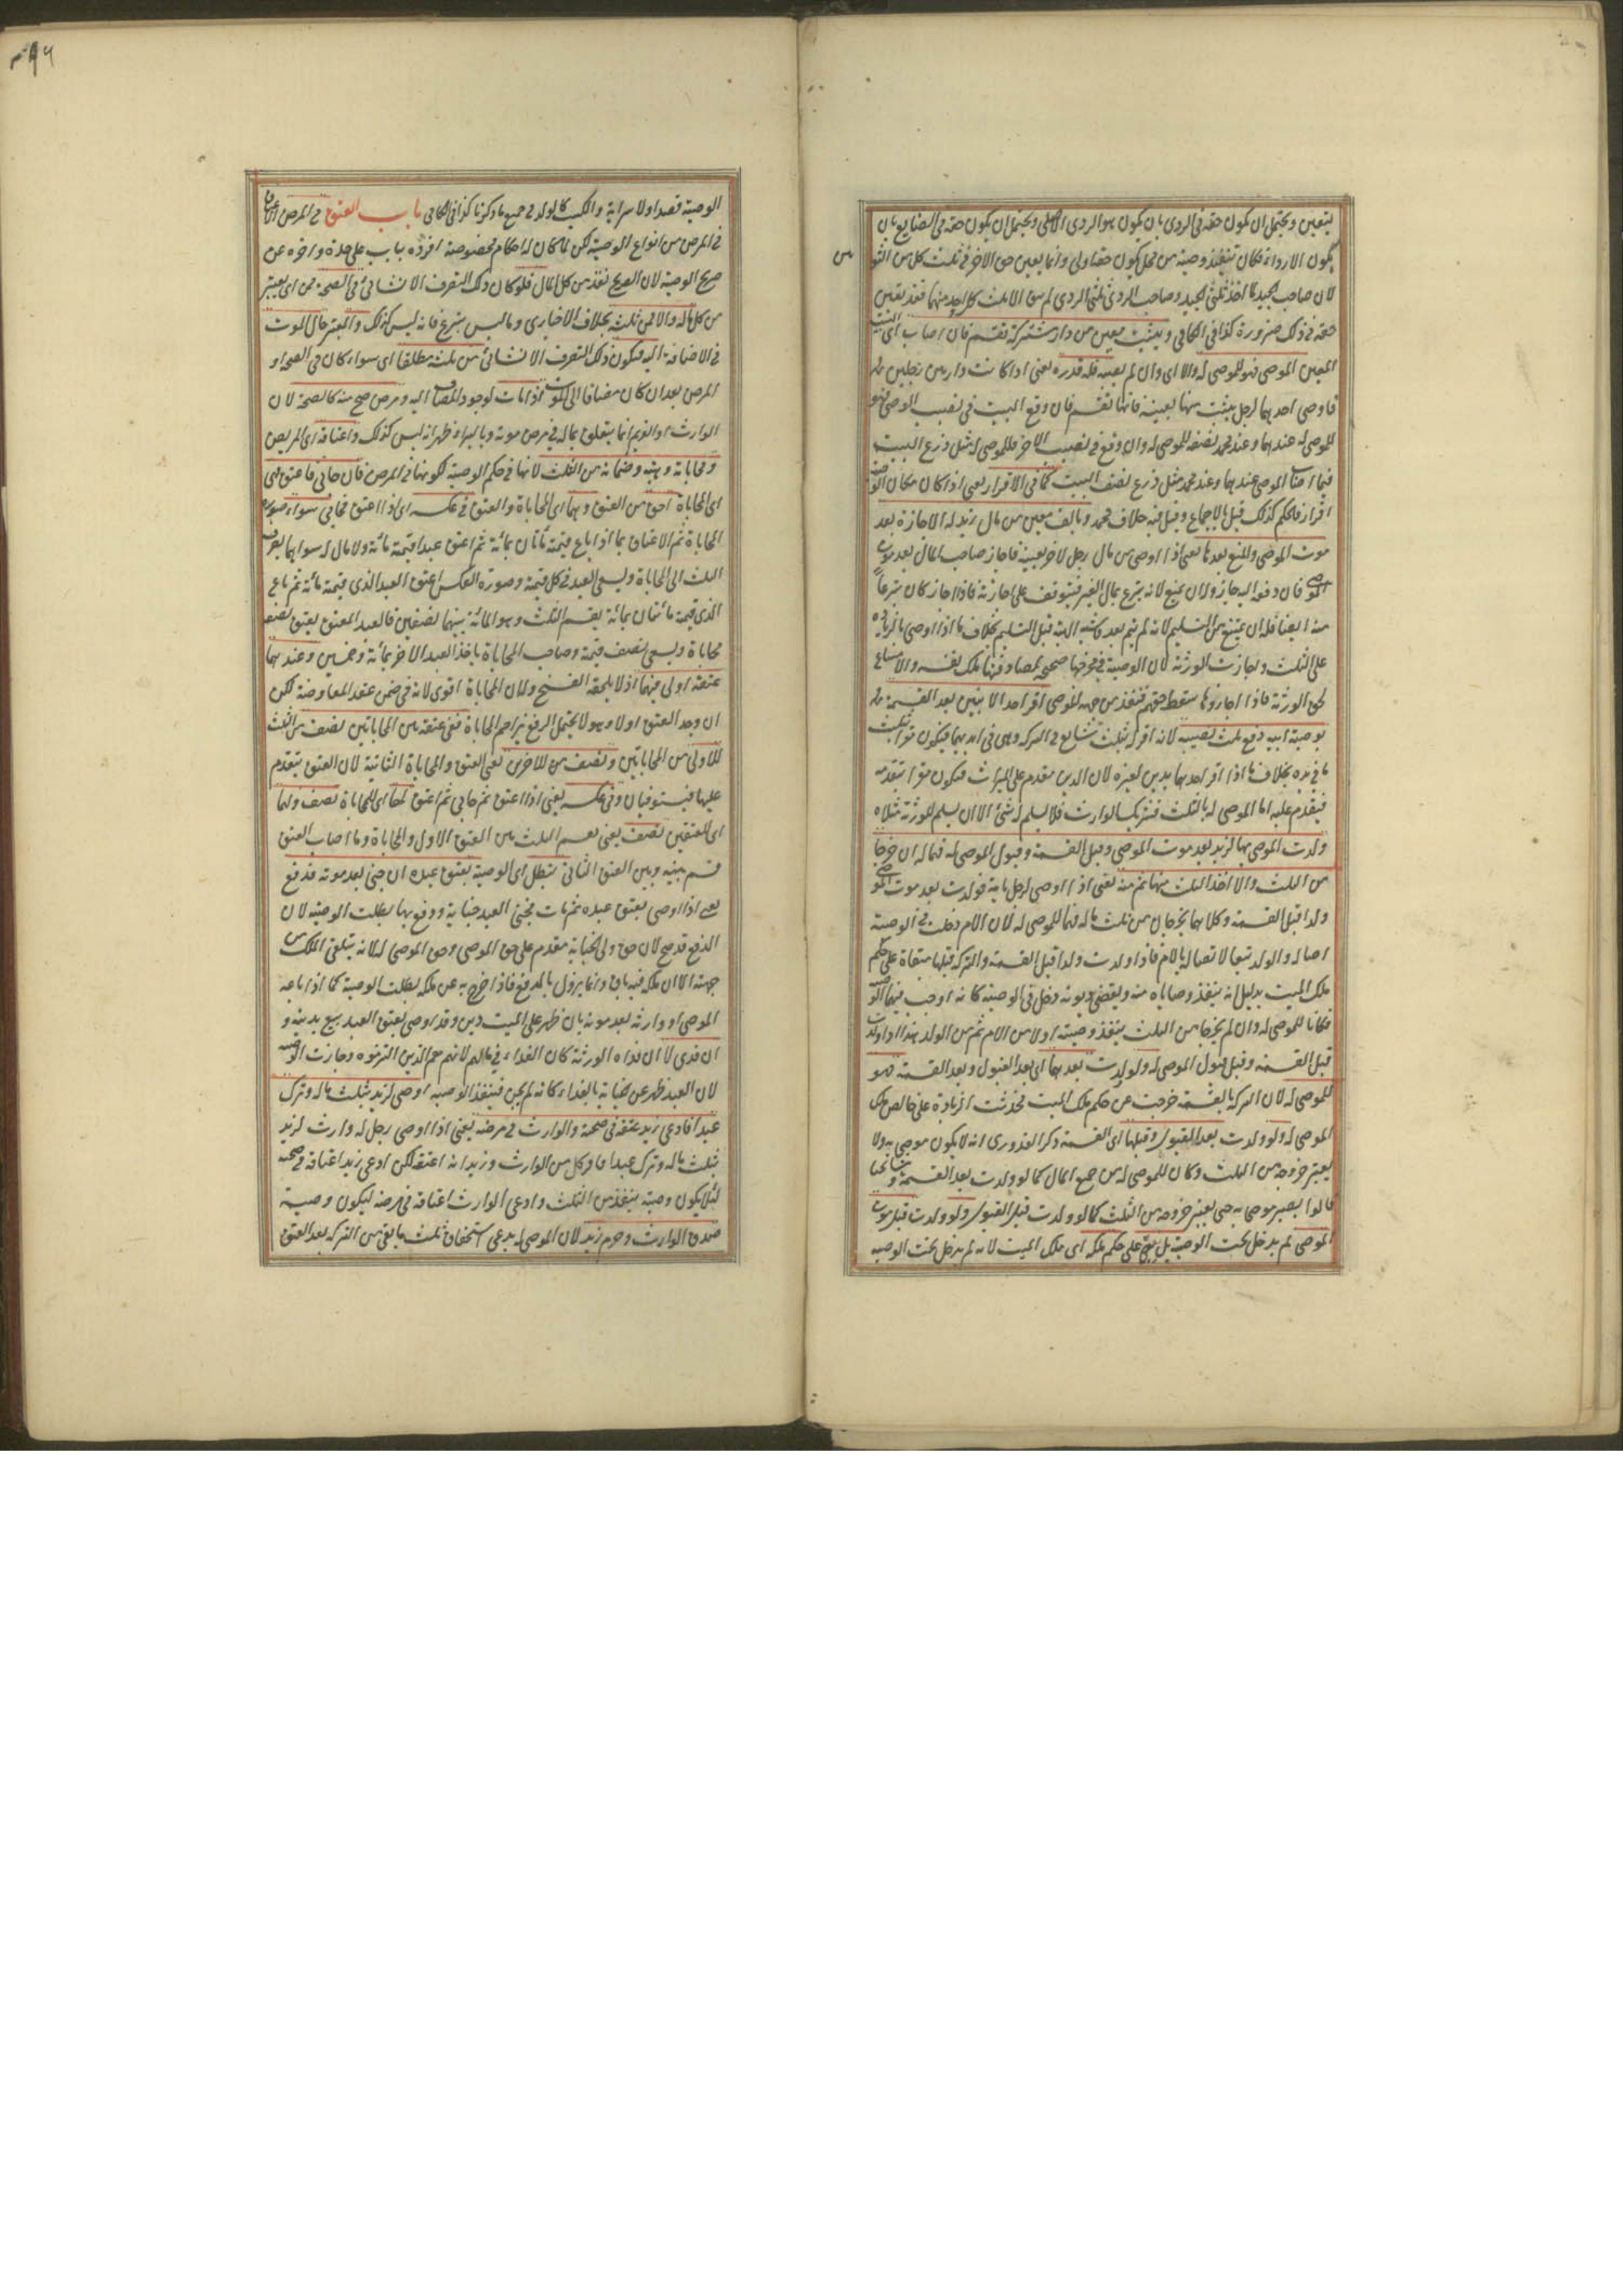 يتعين ويحتمل ان يكون حقه فى الردى بان يكون هو الردى الاصلى ويحتمل ان يكون حقه فى الضايع بان
يكون الارداء فكان تنفيذ وصية من محل يكون حقه اولى وانما يعين حق الاخر فى ثلث كل من الثو
لان صاحب الجيد لما اخذ ثلثى الجيد وصاحب الردى ثلثى الردى لم يبق الا ثلث كل واحد منهما فقد تعين
حقه فى ذلك ضرورة كذا فى الكافى وببيت معين من دار مشتركة تقسم فان اصاب اى البيت
المعين الموصى فهو للموصى له والا اى وان لم يصبه فله قدره يعنى اذا كانت دار بين رجلين
فاوصى احدهما لرجل ببيت منها بعينه فانها تقسم فان وقع البيت فى نصيب الموصى فهو
للموصى له عندهما وعند محمد نصفه للموصى له وان وقع فى نصيب الاخر فللموصى له مثل ذرع البيت
فيما اصاب الموصى عندهما وعند محمد مثل ذرع نصف البيت كما فى الاقرار يعنى اذا كان مكان الوصية
اقرار فالحكم كذلك قيل بالاجماع وقيل فيه خلاف محمد وبالف معين من مال زيد له الاجازة بعد
موت الموصى والمنع بعدها يعنى اذا اوصى من مال رجل لاخر بعينه فاجاز صاحب المال بعد موت
الموصى فان دفعه اليه جاز وله ان يمنع لانه تبرع بمال الغير فيتوقف على اجازته فاذا اجاز كان تبرعا
منه ايضا فله ان يمتنع من التسليم لانه لم يتم بعد كالهبة قبل التسليم بخلاف ما اذا اوصى بالزيادة
على الثلث واجازت الورثة لان الوصية فى مخرجها صحيحة لمصادفتها ملك نفسه والامتناع
لحق الورثة فاذا اجازوها سقط حقهم فتنفذ من جهة الموصى اقر احد الابنين بعد القسمة
بوصية ابيه دفع ثلث نصيبه لانه اقر له بثلث شايع فى التركة وهى فى ايديهما فيكون مقرا بثلث
ما فى يده بخلاف ما اذا اقر احدهما بدين لغيره لان الدين مقدم على الميراث فيكون مقرا بتقدمه
فيقدم عليه اما الموصى له بالثلث فشريك الوارث فلا يسلم له شئ الا ان يسلم للورثة مثلاه
ولدت الموصى بها لزيد بعد موت الموصى وقبل القسمة وقبول الموصى له فهما له ان خرجا
من الثلث والا اخذ الثلث منها ثم منه يعنى اذا اوصى لرجل بامة فولدت بعد موت الموصى
ولدا قبل القسمة وكلاهما يخرجان من ثلث ماله فهما للموصى له لان الام دخلت فى الوصية
اصالة والولد تبعا لاتصاله بالام فاذا ولدت ولدا قبل القسمة والتركة قبلها مبقاة على حكم
ملك الميت بدليل انه ينفذ وصاياه منه ويقضى ديونه دخل فى الوصية كانه اوجب فيهما الوصية
فكانا للموصى له وان لم يخرجا من الثلث ينفذ وصيته اولا من الام ثم من الولد هذا اذا ولدت
قبل القسمة وقبل قبول الموصى له ولو ولدت بعدهما اى بعد القبول وبعد القسمة فهو
للموصى له لان التركة بالقسمة خرجت عن حكم ملك الميت فحدثت الزيادة على خالص ملك
الموصى له ولو ولدت بعد القبول وقبلها اى القسمة ذكر القدورى انه لا يكون موصى به ولا
يعتبر خروجه من الثلث وكان للموصى له من جميع المال كما لو ولدت بعد القسمة ومشايخنا
قالوا يصير موصى به حتى يعتبر خروجه من الثلث كما لو ولدت قبل القبول ولو ولدت قبل موت
الموصى لم يدخل تحت الوصية بل بقى على حكم ملكه اى ملك الميت لانه لم يدخل تحت الوصية
الوصية قصدا ولا سراية والكسب كالولد فى جميع ما ذكرنا كذا فى الكافى باب العتق فى المرض الاعتاق
فى المرض من انواع الوصية لكن لما كان له احكام مخصوصة افرده بباب على حدة واخره عن
صريح الوصية لان الصريح نفذ من كل المال فلو كان ذلك التصرف الانشائى فى الصحة فمن اى يعتبر
من كل ماله والا فمن ثلثه بخلاف الاخبارى وما ليس بتبرع فانه ليس كذلك والمعتبر حال الموت
فى الاضافة اليه فيكون ذلك التصرف الانشائى من ثلثه مطلقا اى سواء كان فى الصحة او
المرض بعد ان كان مضافا الى الموت اذا مات لوجود المضاف اليه ومرض صح منه كالصحة لان
الوارث او الغريم انما يتعلق بماله فى مرض موته وبالبرء ظهر انه ليس كذلك واعتاقه اى المريض
ومحاباته وهبته وضمانه من الثلث لانها فى حكم الوصية لكونها فى المرض فان حابى فاعتق فهى
اى المحاباة احق من العتق وهما اى المحاباة والعتق فى عكسه اى اذا اعتق فحابى سواء صورة
المحاباة ثم الاعتاق ما اذا باع قيمته مأتان بمائة ثم اعتق عبدا قيمته مائة ولا مال له سواهما يصرف
الثلث الى المحاباة ويسعى العبد فى كل قيمته وصورة العكس اعتق العبد الذى قيمته مائة ثم باع
الذى قيمته مأتان بمائة يقسم الثلث وهو المائة بينهما نصفين فالعبد المعتق يعتق نصفه
مجانا ويسعى بنصف قيمته وصاحب المحاباة ياخذ العبد الاخر بمائة وخمسين وعندهما
عتقه اولى فيهما اذ لا يلحقه الفسخ وله ان المحاباة اقوى لانه فى ضمن عقد المعاوضة لكن
ان وجد العتق اولا وهو لا يحتمل الرفع يزاحم المحاباة ففى عتقه بين المحاباتين نصف من الثلث
للاولى من المحاباتين ونصف من للاخرى يعنى العتق والمحاباة الثانية لان العتق يتقدم
عليها فيستويان وفى عكسه يعنى اذا اعتق ثم حابى ثم اعتق لها اى للمحاباة نصف ولهما
اى للعتقين نصف يعنى يقسم الثلث بين العتق الاول والمحاباة وما اصاب العتق
قسم بينه وبين العتق الثانى تبطل اى الوصية بعتق عبده ان جنى بعد موته فدفع
يعنى اذا اوصى بعتق عبده ثم مات فجنى العبد جناية ودفع بها بطلت الوصية لان
الدفع قد صح لان حق ولى الجناية مقدم على حق الموصى وحق الموصى له لانه يتلقى الملك من
جهته الا ان ملكه فيه باق وانما يزول بالدفع فاذا خرج به عن ملكه بطلت الوصية كما اذا باعه
الموصى او وارثه بعد موته بان ظهر على الميت دين وقد اوصى بعتق العبد بيع بدينه و
ان فدى لا ان فداه الورثة كان الفداء فى مالهم لانهم هم الذين التزموه وجازت الوصية
لان العبد طهر عن الجناية بالفداء كانه لم يجن فينفذ الوصية اوصى لزيد بثلث ماله وترك
عبدا فادعى زيد عتقه فى صحته والوارث فى مرضه يعنى اذا اوصى رجل له وارث لزيد
بثلث ماله وترك عبدا فاقر كل من الوارث وزيد انه اعتقه لكن ادعى زيد اعتاقه فى صحته
لئلا يكون وصية ينفذ من الثلث وادعى الوارث اعتاقه فى مرضه ليكون وصية
صدق الوارث وحرم زيد لان الموصى له يدعى استحقاق ثلث ما بقى من التركة بعد العتق